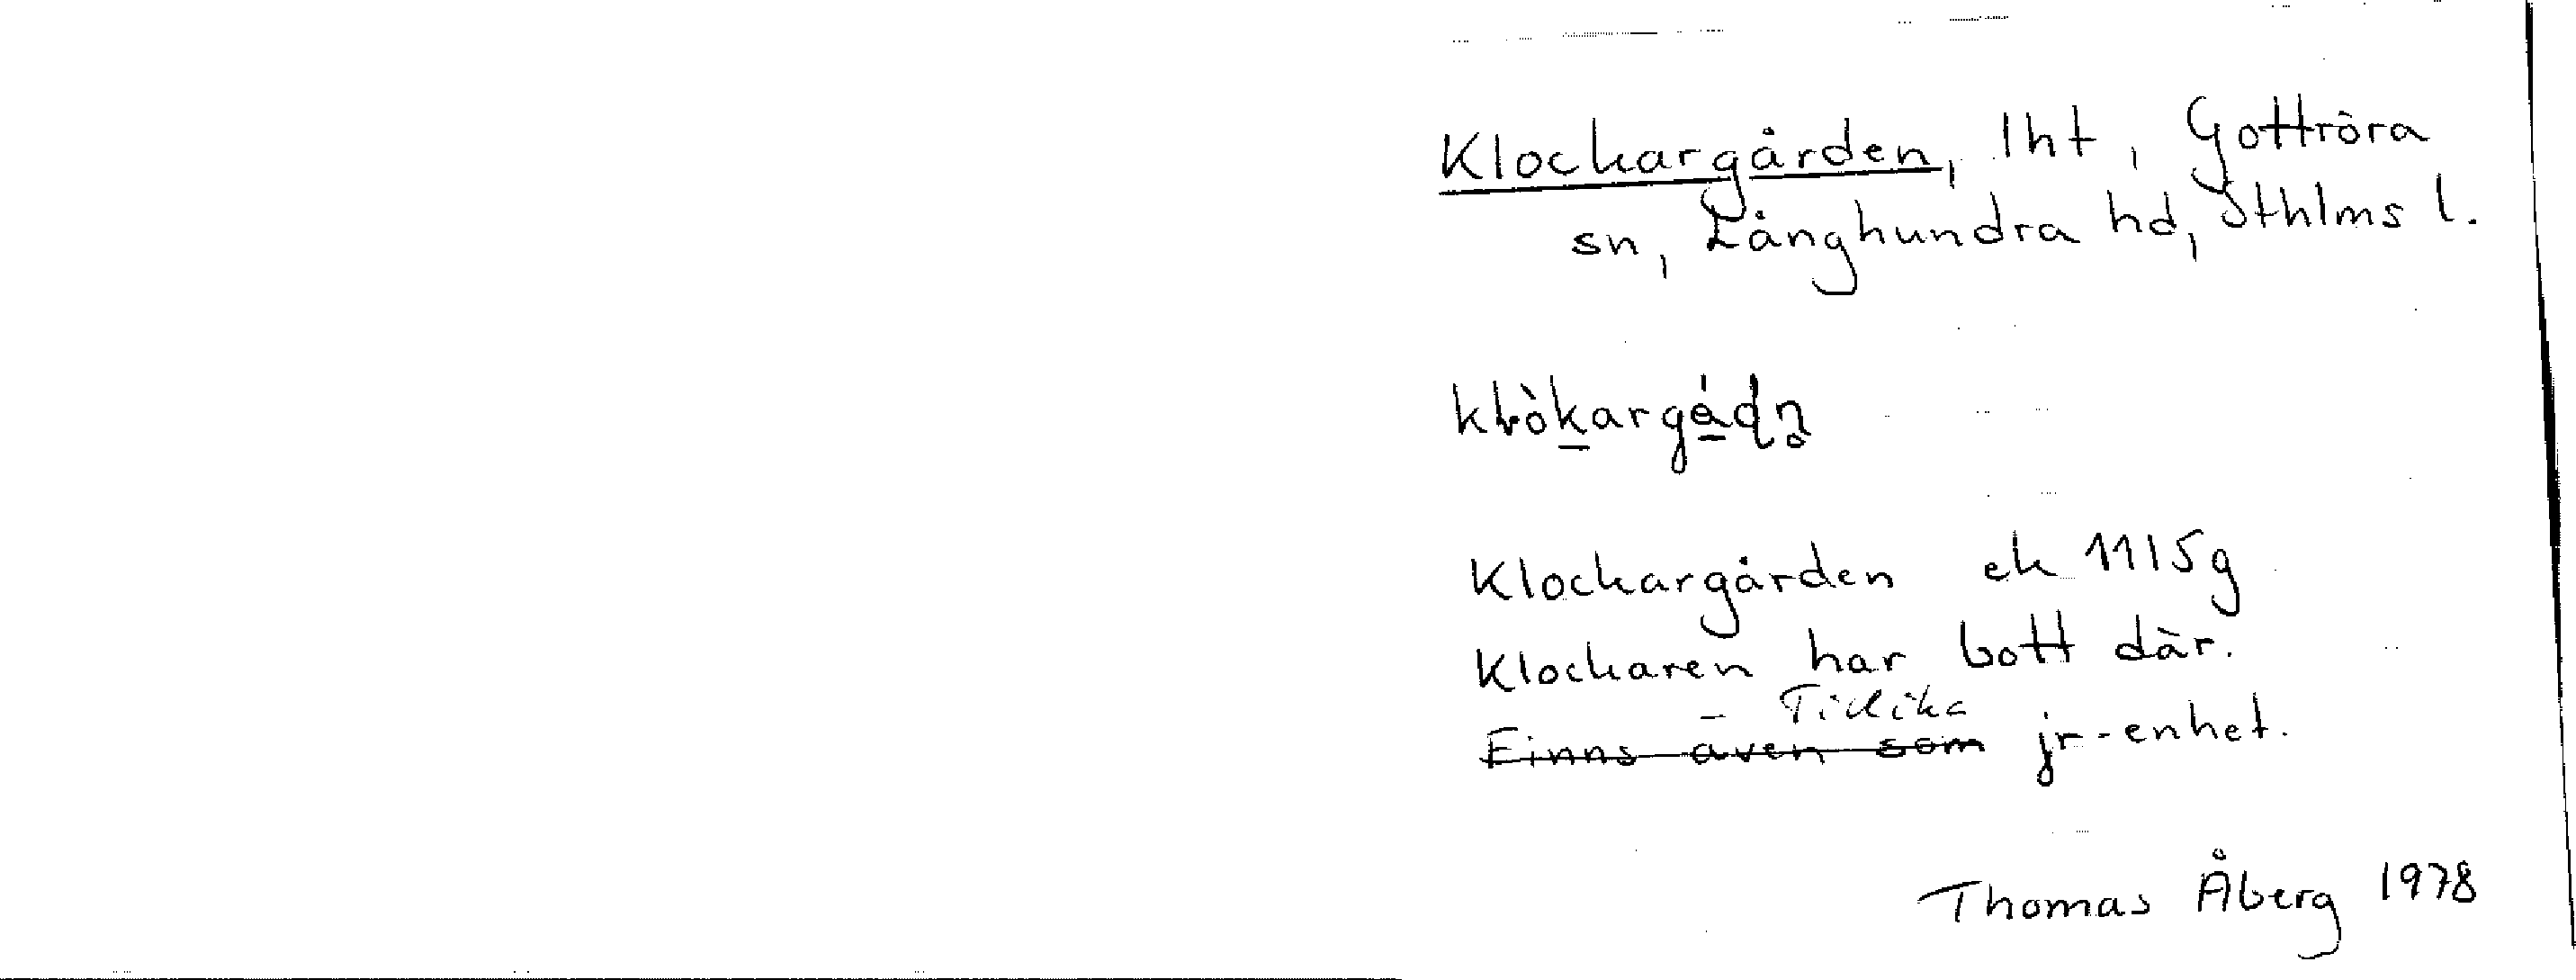 Klockargården, lht, Gottröra
sn, Långhundra hd, Sthlms l.
Klockargården ek 11I5g
Klockaren har bott där.
– Tidika
Finns även som jr-enhet.
Thomas Åberg 1978